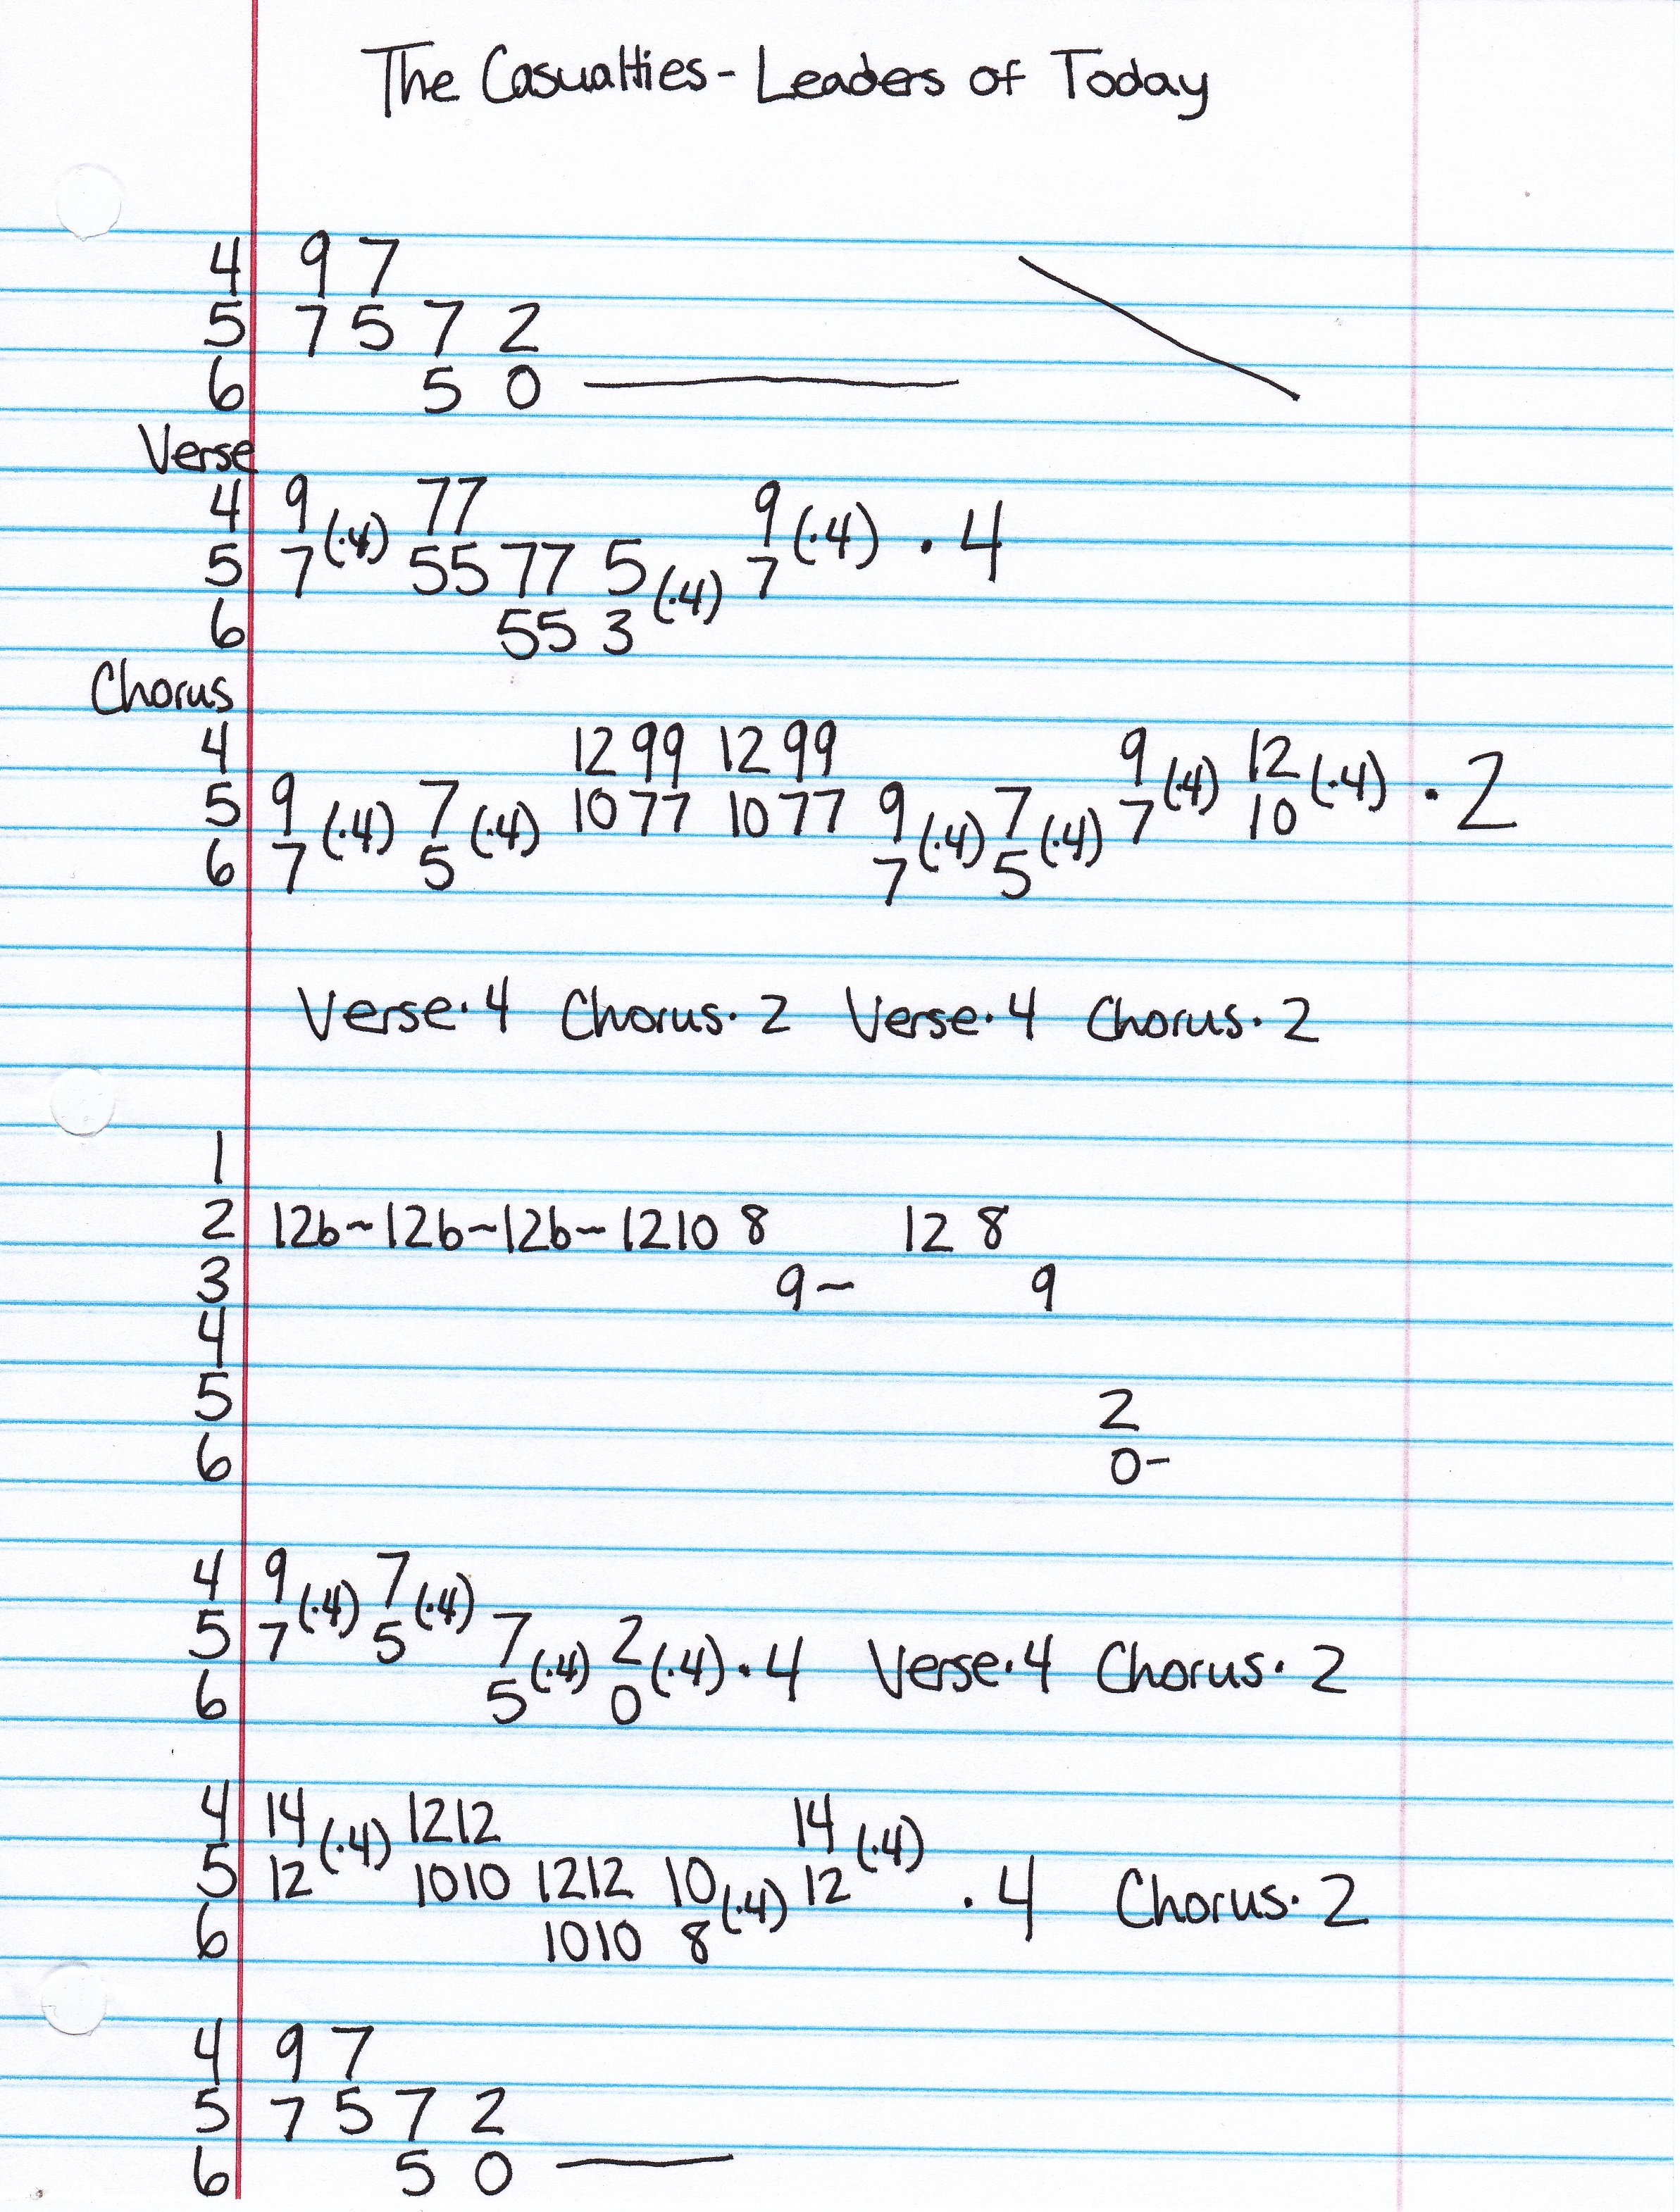 The Casualties - Leaders of Today
4 9 7
5 7 5 7 2
6 5 0
Verse
4 9 (·4) 77 9 (·4) · 4
5 7 55 77 5 (·4) 7
6 55 3
Chorus
4 12 99 12 99 9 (·4) 12 (·4) · 2
5 9 (·4) 7 (·4) 10 77 10 77 9 (·4) 7 (·4) 7 10
6 7 5 7 5
Verse·4 Chorus·2 Verse·4 Chorus·2
1
2 12b~12b~12b~1210 8 12 8
3 9~ 9
4
5 2
6 0-
4 9 (·4) 7 (·4)
5 7 5 7 (·4) 2 (·4) · 4 Verse·4 Chorus·2
6 5 0
4 14 (·4) 1212 14 (·4)
5 12 1010 1212 10 (·4) 12 · 4 Chorus·2
6 1010 8
4 9 7
5 7 5 7 2
6 5 0